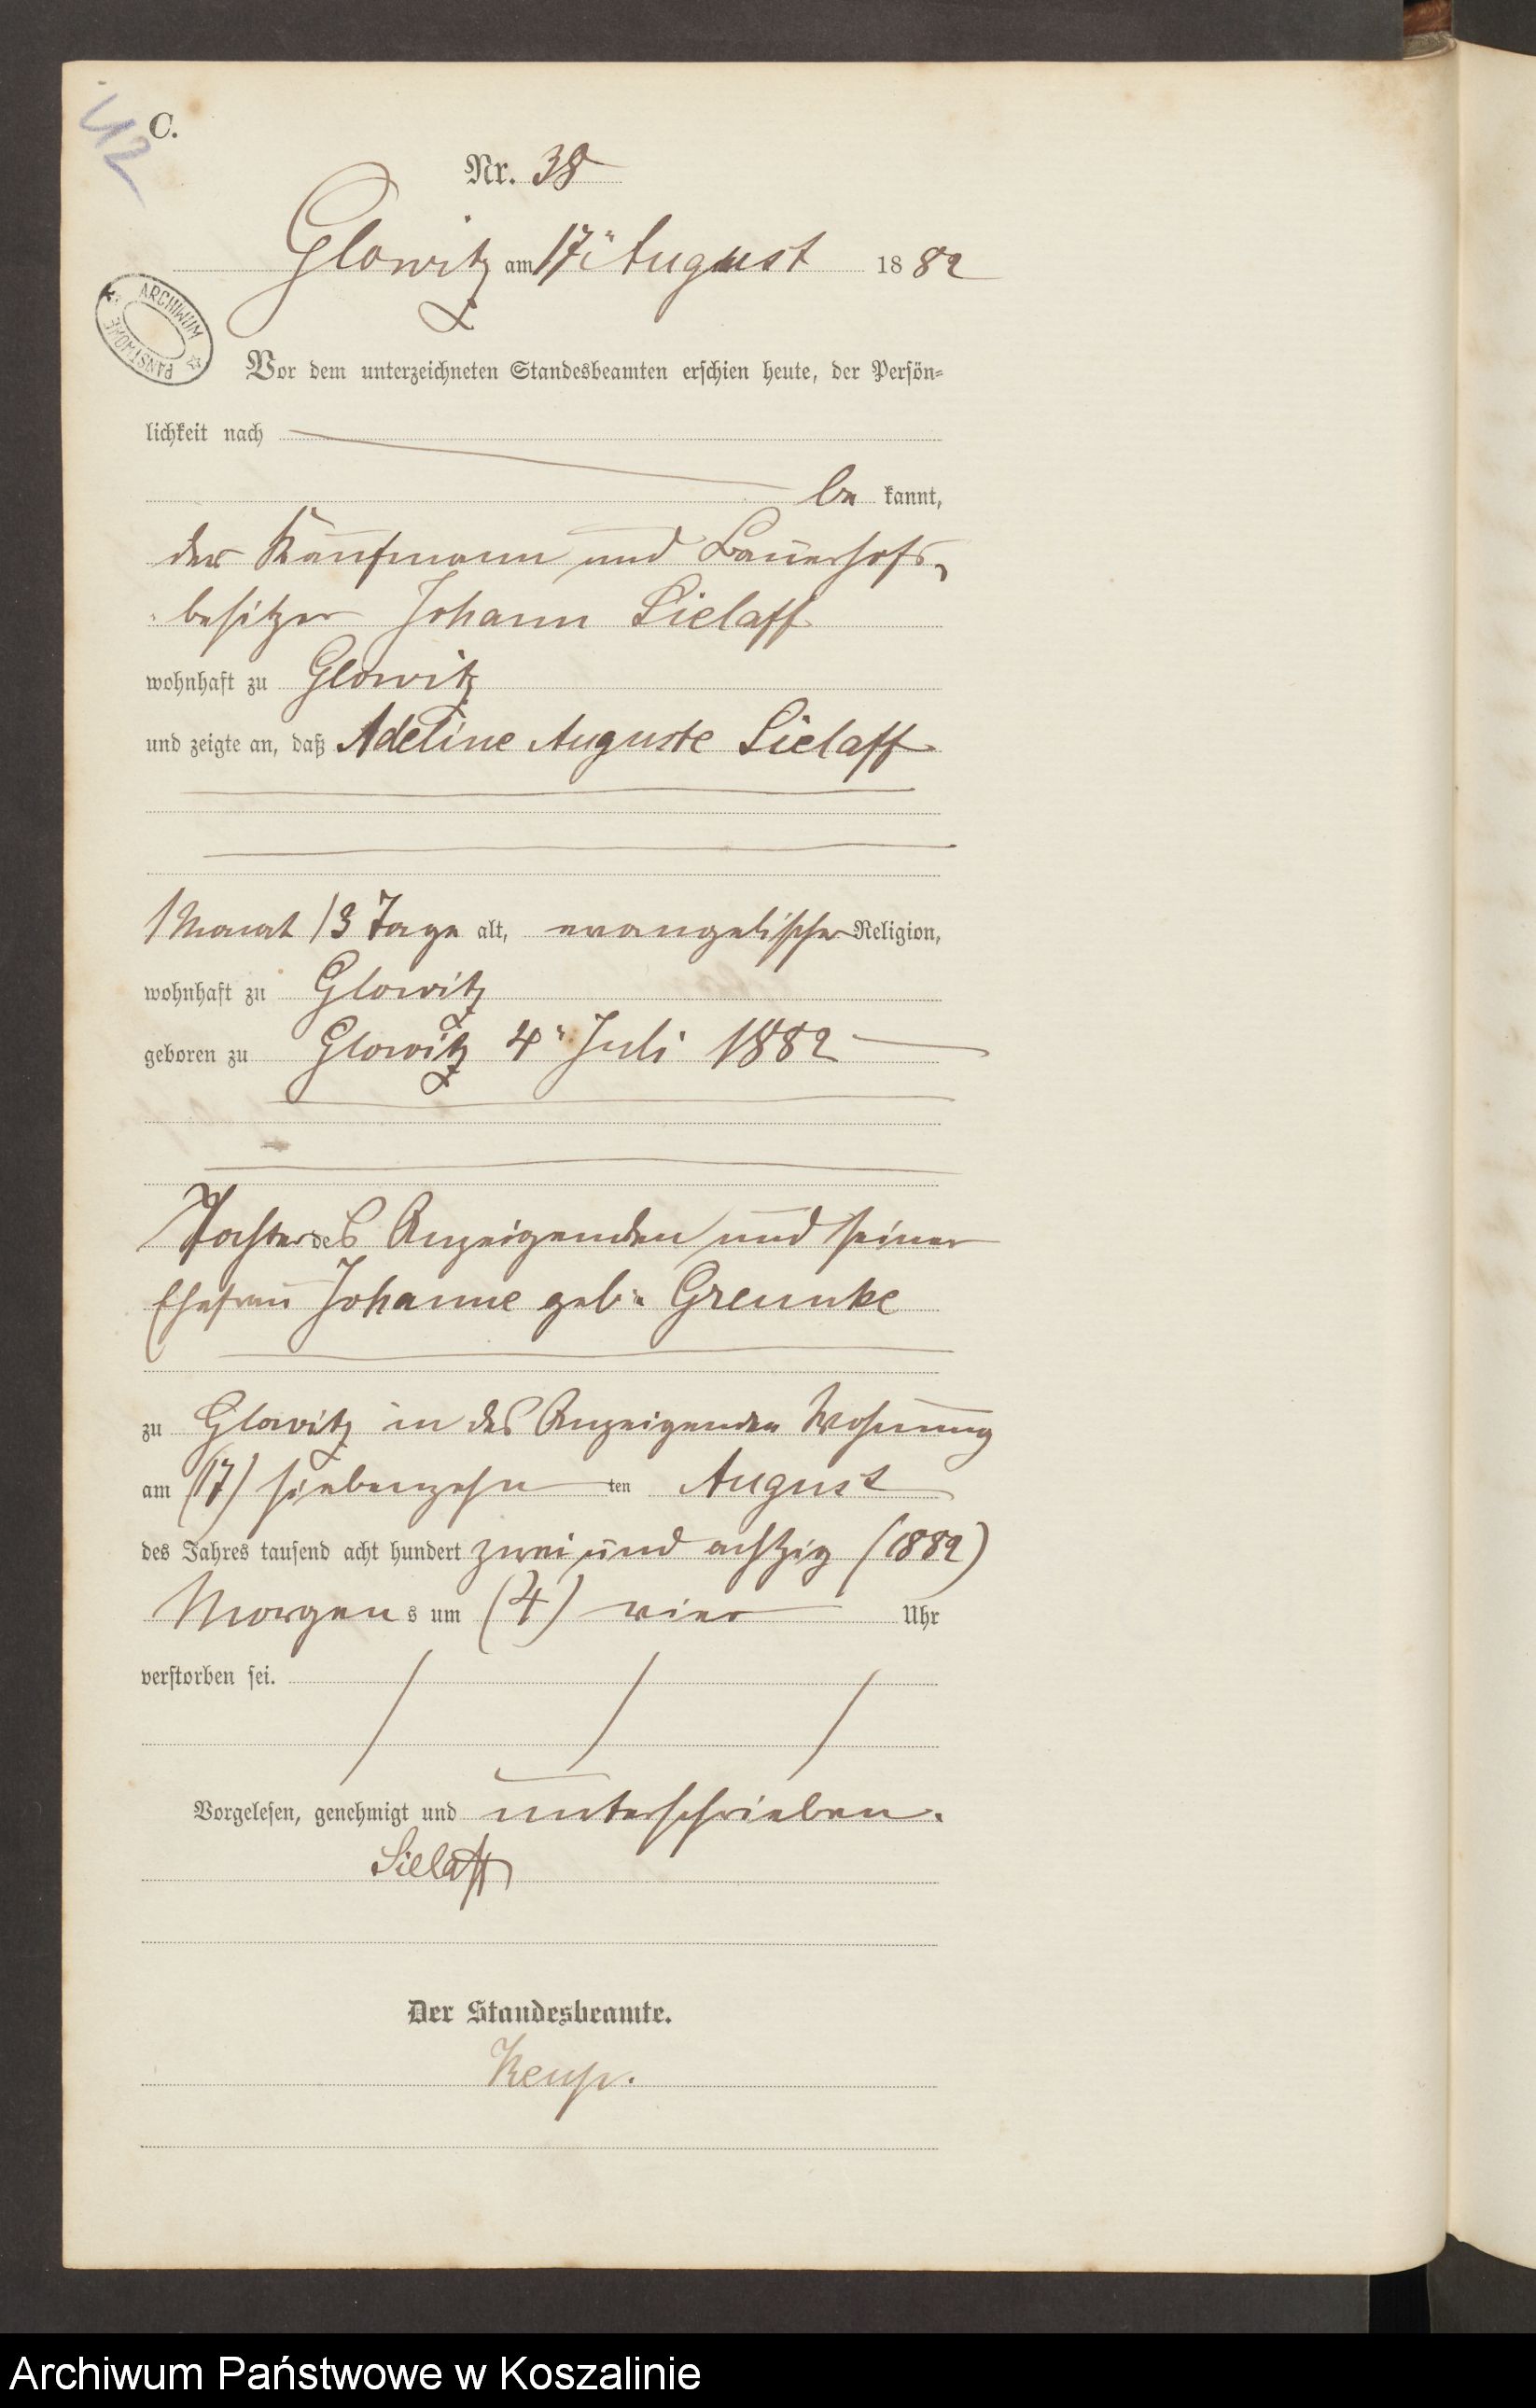 42
C.
Nr. 38
Glowitz am 17ten August 1882
ARCHIWUM PAŃSTWOWE
Vor dem unterzeichneten Standesbeamten erschien heute, der Persön-
lichkeit nach
be kannt,
der Kaufmann und Bauerhofs-
besitzer Johann Sielaff
wohnhaft zu Glowitz
und zeigte an, daß Adeline Auguste Sielaff
1 Monat 13 Tage alt, evangelischer Religion,
wohnhaft zu Glowitz
geboren zu Glowitz 4ten Juli 1882
Tochter des Anzeigenden und seiner
Ehefrau Johanne geb. Greunke
zu Glowitz in des Anzeigenden Wohnung
am (17) siebenzehn ten August
des Jahres tausend acht hundert zwei und achtzig (1882)
Morgen s um (4) vier Uhr
verstorben sei.
Vorgelesen, genehmigt und unterschrieben.
Sielaff
Der Standesbeamte.
Archiwum Państwowe w Koszalinie